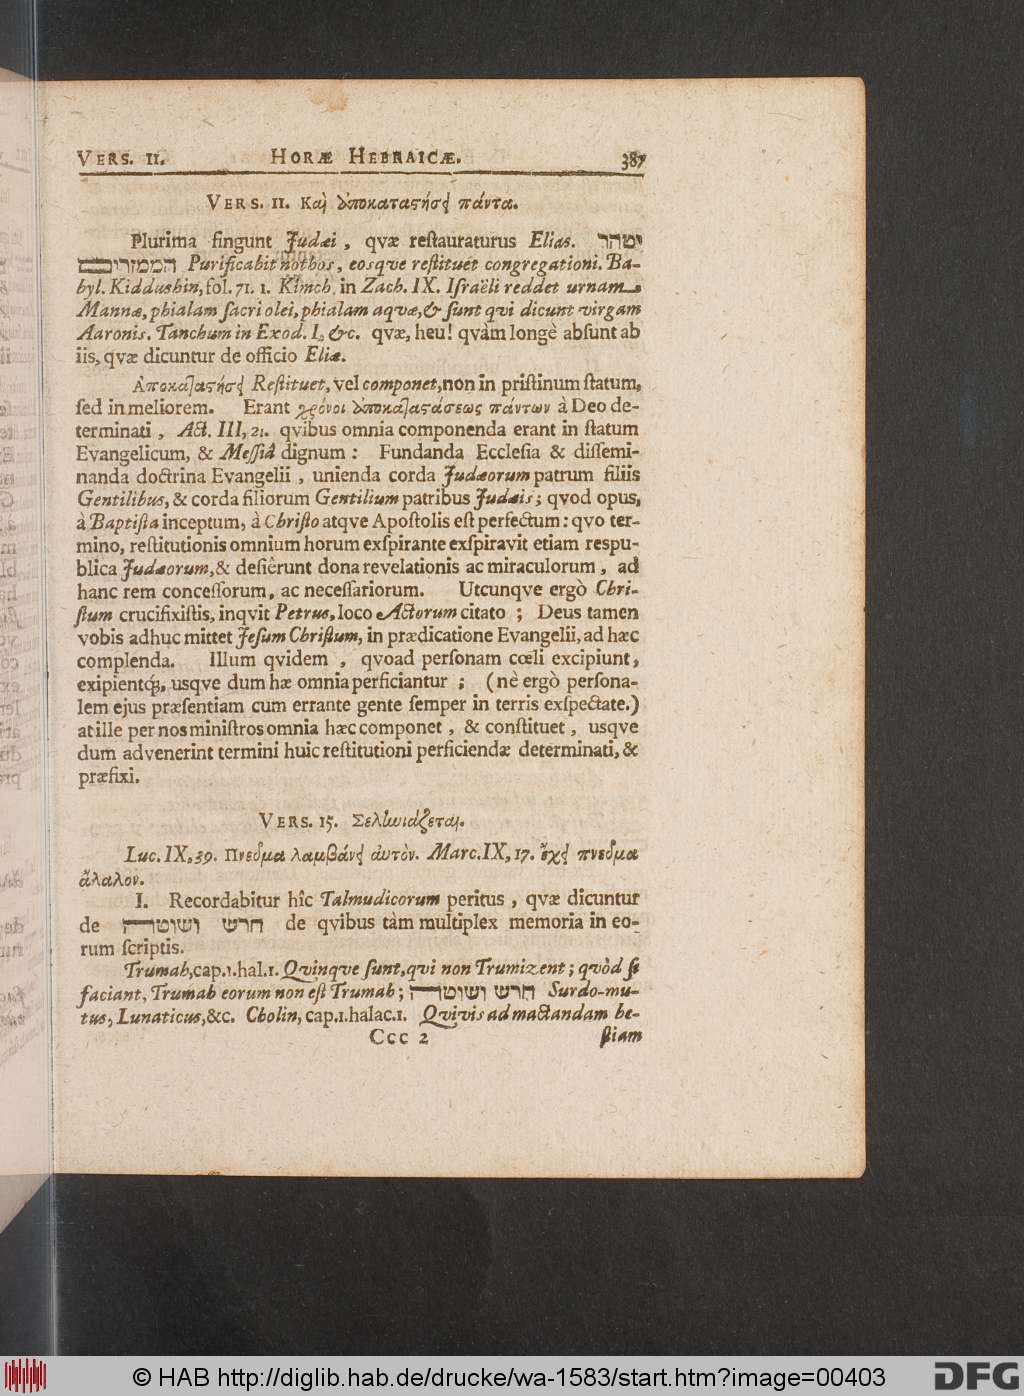 VERS. II. HORÆ HEBRAICÆ. 387
VERS. II. Καὶ ἀποκαταϛήσει πάντα.
Plurima fingunt Judæi, qvæ restauraturus Elias. יטהר
הממזרים Purificabit nothos, eosqve restituet congregationi. Ba-
byl. Kiddushin, fol. 71. 1. Kimch. in Zach. IX. Israëli reddet urnam
Mannæ, phialam sacri olei, phialam aquæ, & sunt qvi dicunt virgam
Aaronis. Tanchum in Exod. I, &c. qvæ, heu! qvàm longè absunt ab
iis, qvæ dicuntur de officio Eliæ.
Ἀποκαταϛήσει Restituet, vel componet, non in pristinum statum,
sed in meliorem. Erant χρόνοι ἀποκαταϛάσεως πάντων à Deo de-
terminati, Act. III, 21. qvibus omnia componenda erant in statum
Evangelicum, & Messiâ dignum: Fundanda Ecclesia & dissemi-
nanda doctrina Evangelii, unienda corda Judæorum patrum filiis
Gentilibus, & corda filiorum Gentilium patribus Judæis; qvod opus,
à Baptista inceptum, à Christo atqve Apostolis est perfectum: qvo ter-
mino, restitutionis omnium horum exspirante exspiravit etiam respu-
blica Judæorum, & desiêrunt dona revelationis ac miraculorum, ad
hanc rem concessorum, ac necessariorum. Utcunqve ergò Chri-
stum crucifixistis, inqvit Petrus, loco Actorum citato; Deus tamen
vobis adhuc mittet Jesum Christum, in prædicatione Evangelii, ad hæc
complenda. Illum qvidem, qvoad personam cœli excipiunt,
exipientq;, usqve dum hæ omnia perficiantur; (nè ergò persona-
lem ejus præsentiam cum errante gente semper in terris exspectate.)
at ille per nos ministros omnia hæc componet, & constituet, usqve
dum advenerint termini huic restitutioni perficiendæ determinati, &
præfixi.
VERS. 15. Σεληνιάζεται.
Luc. IX, 39. Πνεῦμα λαμβάνει αὐτὸν. Marc. IX, 17. ἔχει πνεῦμα
ἄλαλον.
I. Recordabitur hîc Talmudicorum peritus, qvæ dicuntur
de חרש ושוטה de qvibus tàm multiplex memoria in eo-
rum scriptis.
Trumah, cap. 1. hal. 1. Qvinqve sunt, qvi non Trumizent; qvòd si
faciant, Trumah eorum non est Trumah; חרש ושוטה Surdo-mu-
tus, Lunaticus, &c. Cholin, cap. 1. halac. 1. Qvivis ad mactandam be-
Ccc 2 stiam
© HAB http://diglib.hab.de/drucke/wa-1583/start.htm?image=00403 DFG